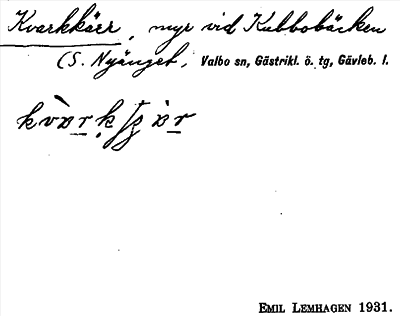 Kvarkkärr, myr vid Kubbobäcken
(S. Nyänget, Valbo sn, Gästrikl. ö. tg, Gävleb. l.
EMIL LEMHAGEN 1931.